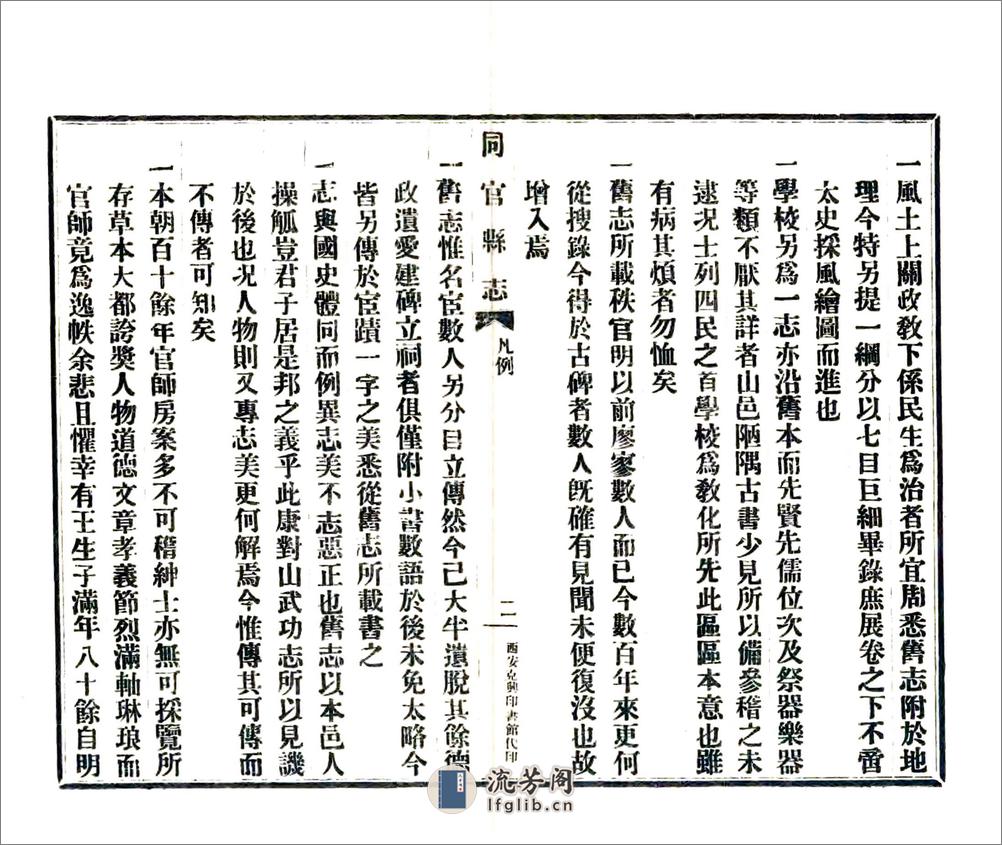 一風土上關政教下係民生爲治者所宜周悉舊志附於地
理今特另提一綱分以七目巨細畢錄庶展卷之下不啻
太史採風繪圖而進也
一學校另爲一志亦沿舊本而先賢先儒位次及祭器樂器
等類不厭其詳者山邑陋隅古書少見所以備參稽之未
逮况士列四民之首學校爲教化所先此區區本意也雖
有病其煩者勿恤矣
一舊志所載秩官明以前廖寥數人而已今數百年來更何
從搜錄今得於古碑者數人旣確有見聞未便復沒也故
增入焉
同官縣志
凡例
二
西安克興印書館代印
一舊志惟名宦數人另分目立傳然今已大半遺脫其餘德
政遺愛建碑立祠者俱僅附小書數語於後未免太略今
皆另傳於宦蹟一字之美悉從舊志所載書之
一志與國史體同而例異志美不志惡正也舊志以本邑人
操觚豈君子居是邦之義乎此康對山武功志所以見譏
於後也况人物則又專志美更何解焉今惟傳其可傳而
不傳者可知矣
一本朝百十餘年官師房案多不可稽紳士亦無可採覽所
存草本大都誇獎人物道德文章孝義節烈滿軸琳琅而
官師竟爲逸帙余悲且懼幸有王生子滿年八十餘自明
流芳阁
lfglib.cn